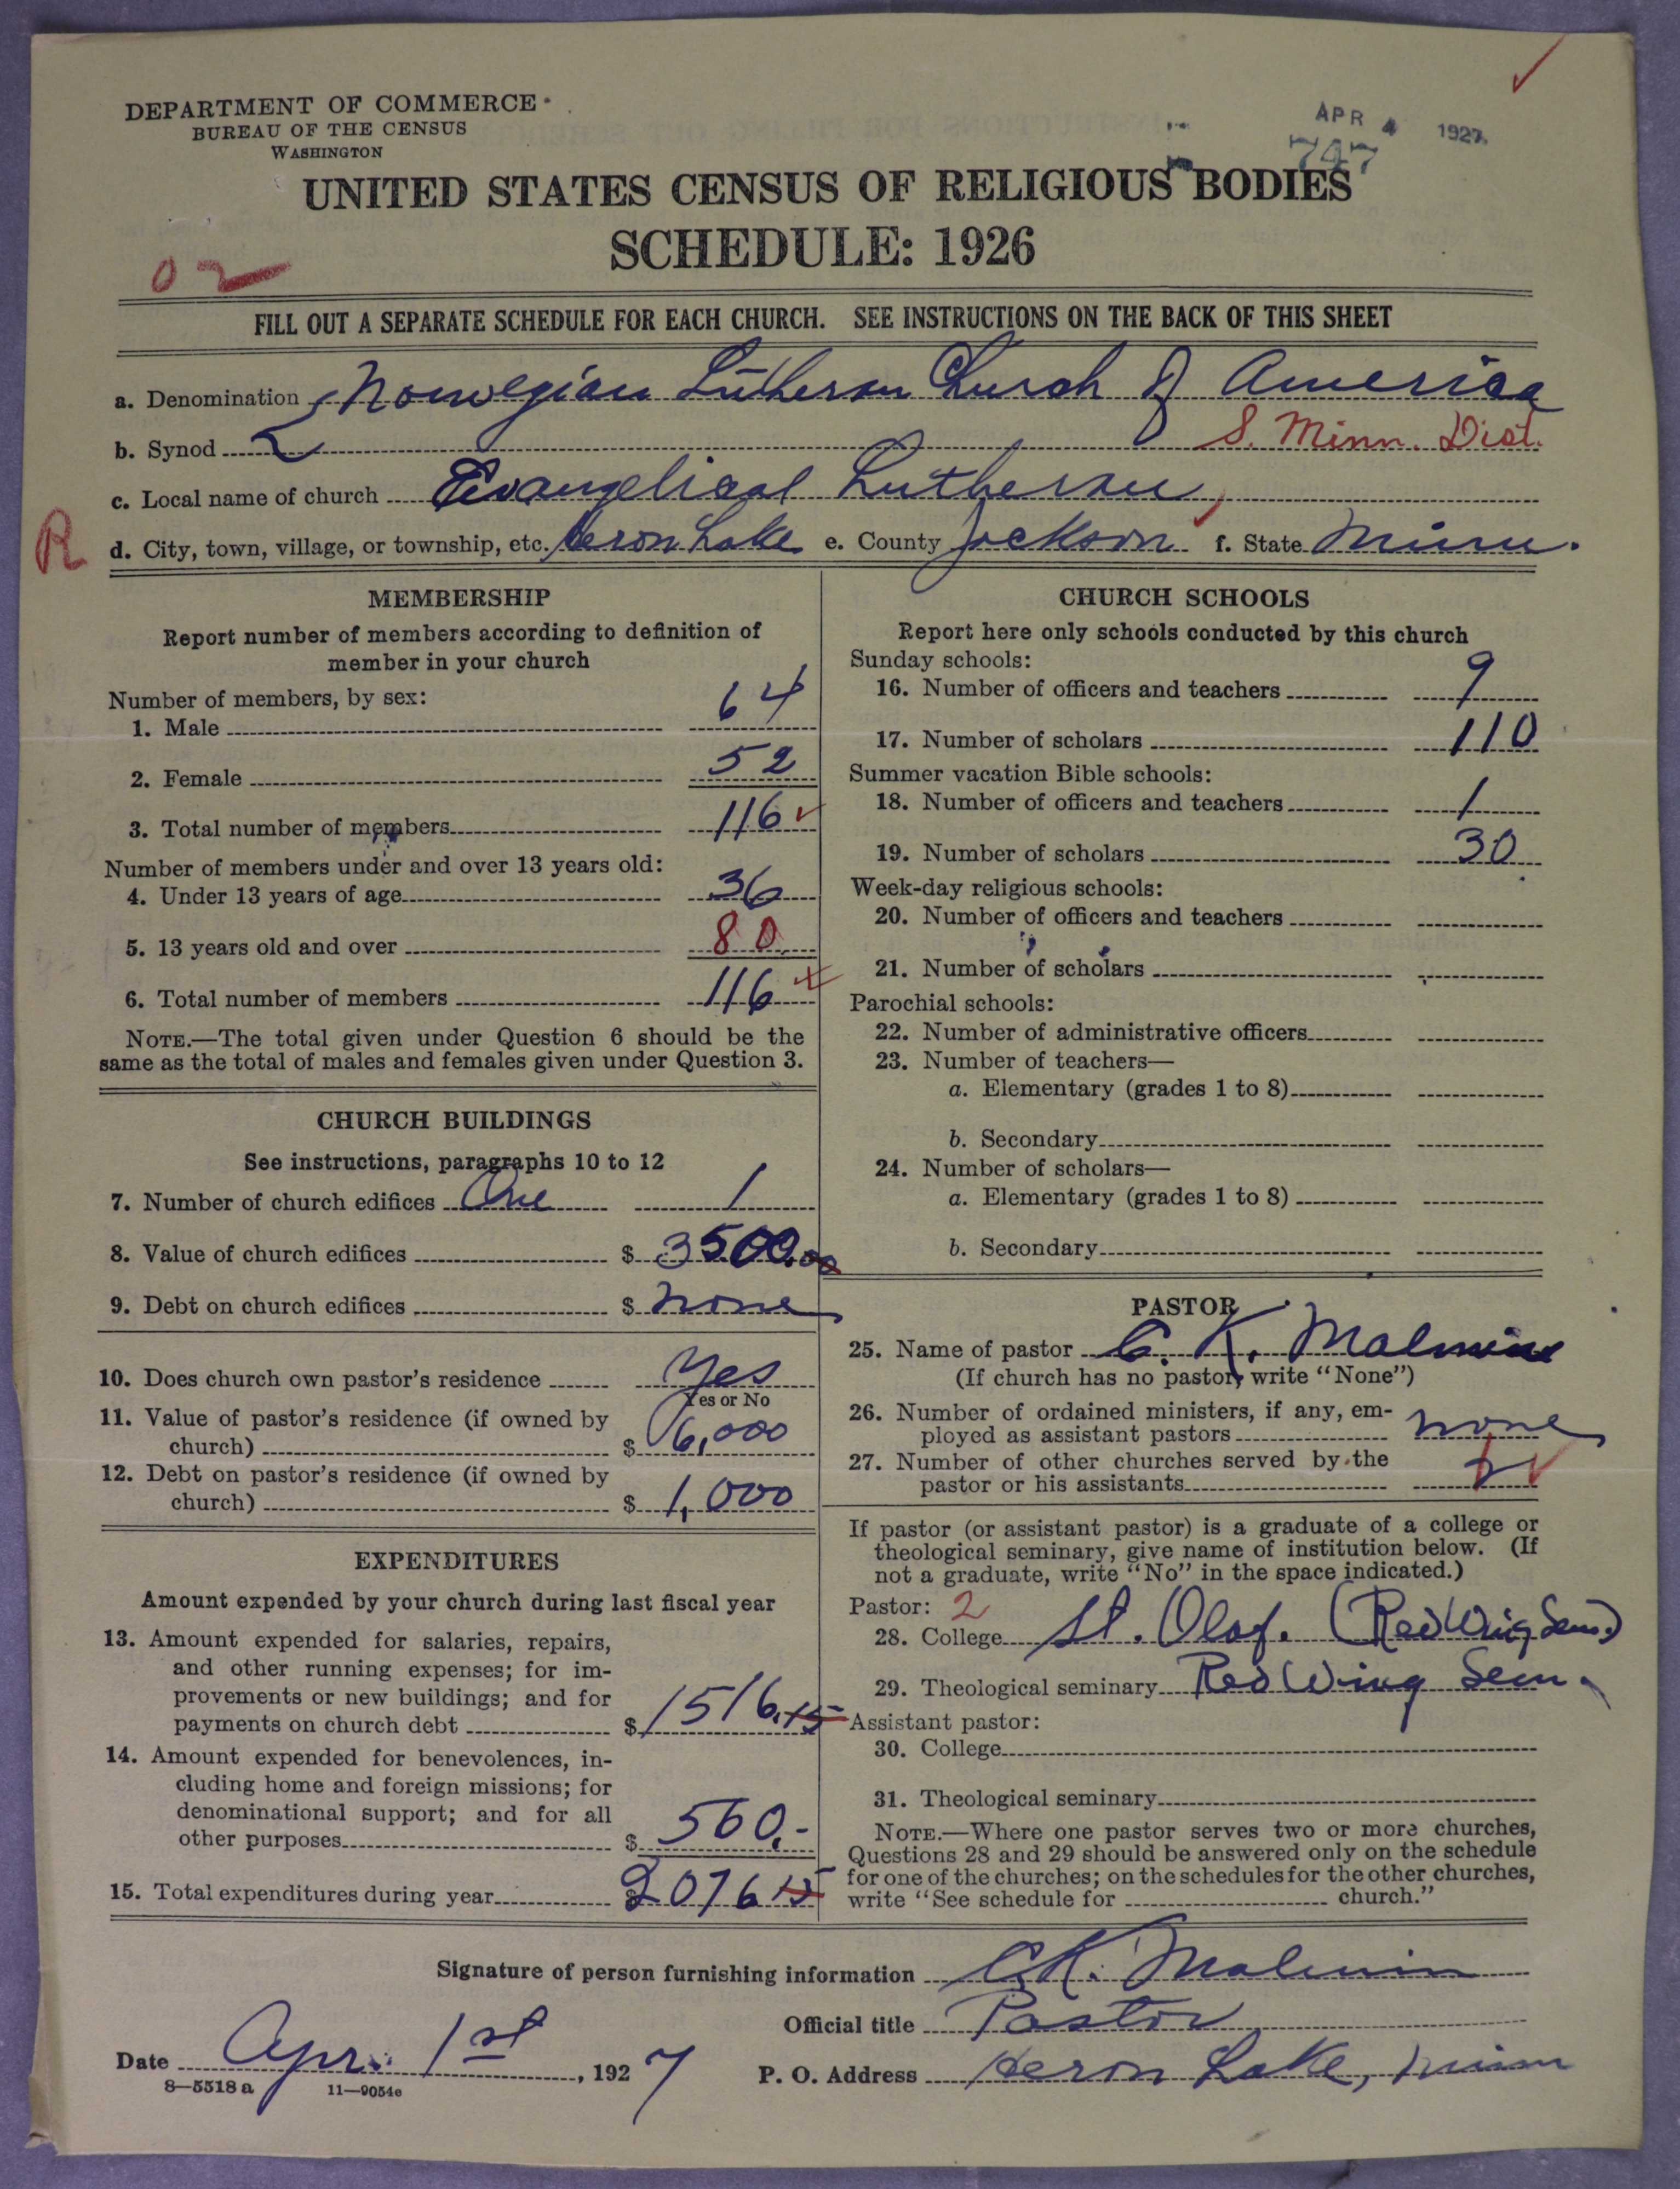 DEPARTMENT OF COMMERCE
BUREAU OF THE CENSUS
WASHINGTON
APR 4 1927
747
UNITED STATES CENSUS OF RELIGIOUS BODIES
SCHEDULE: 1926
02
FILL OUT A SEPARATE SCHEDULE FOR EACH CHURCH. SEE INSTRUCTIONS ON THE BACK OF THIS SHEET
a. Denomination Norwegian Lutheran Church of America
b. Synod S. Minn. Dist.
c. Local name of church Evangelical Lutheran
R
d. City, town, village, or township, etc. Heron Lake e. County Jackson f. State Minn.
MEMBERSHIP
Report number of members according to definition of
member in your church
Number of members, by sex:
1. Male 64
2. Female 52
3. Total number of members 116
Number of members under and over 13 years old:
4. Under 13 years of age 36
5. 13 years old and over 80
6. Total number of members 116
NOTE.—The total given under Question 6 should be the
same as the total of males and females given under Question 3.
CHURCH BUILDINGS
See instructions, paragraphs 10 to 12
7. Number of church edifices One 1
8. Value of church edifices $ 3500.00
9. Debt on church edifices $ none
10. Does church own pastor's residence Yes
Yes or No
11. Value of pastor's residence (if owned by
church) $ 6,000
12. Debt on pastor's residence (if owned by
church) $ 1,000
EXPENDITURES
Amount expended by your church during last fiscal year
13. Amount expended for salaries, repairs,
and other running expenses; for im-
provements or new buildings; and for
payments on church debt $ 1516.15
14. Amount expended for benevolences, in-
cluding home and foreign missions; for
denominational support; and for all
other purposes $ 560.-
15. Total expenditures during year $ 2076 15
CHURCH SCHOOLS
Report here only schools conducted by this church
Sunday schools:
16. Number of officers and teachers 9
17. Number of scholars 110
Summer vacation Bible schools:
18. Number of officers and teachers 1
19. Number of scholars 30
Week-day religious schools:
20. Number of officers and teachers
21. Number of scholars
Parochial schools:
22. Number of administrative officers
23. Number of teachers—
a. Elementary (grades 1 to 8)
b. Secondary
24. Number of scholars—
a. Elementary (grades 1 to 8)
b. Secondary
PASTOR
25. Name of pastor C. K. Malmin
(If church has no pastor, write "None")
26. Number of ordained ministers, if any, em-
ployed as assistant pastors none
27. Number of other churches served by the
pastor or his assistants
If pastor (or assistant pastor) is a graduate of a college or
theological seminary, give name of institution below. (If
not a graduate, write "No" in the space indicated.)
Pastor: 2
28. College St. Olaf. (Red Wing Sem.)
29. Theological seminary Red Wing Sem.
Assistant pastor:
30. College
31. Theological seminary
NOTE.—Where one pastor serves two or more churches,
Questions 28 and 29 should be answered only on the schedule
for one of the churches; on the schedules for the other churches,
write "See schedule for church."
Signature of person furnishing information C.K. Malmin
Official title Pastor
Date Apr. 1st, 1927 P. O. Address Heron Lake, Minn
8—5518 a 11—9054e